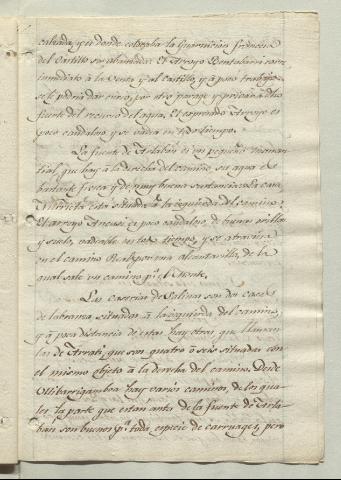 calzada, y es donde estaba la Guarnicion francesa
del Castillo se abastecia. El Arroyo Dentabarri corre
inmediato à la Venta y al Castillo, y à poco trabajo
se le podria dar curso por otro parage y privar à dho
fuerte del recurso del agua. El expresado Arroyo es
poco caudaloso y se vadea en todo tiempo.
La fuente de Arlaban es un pequeño manan-
tial que hay à la derecha del camino su agua es
bastante fresca y de muy buena sustancia. La casa
Mirleta está situada à la izquierda del camino.
El arroyo Ancusi es poco caudaloso, de buenas orillas
y suelo, vadeable en todo tiempo, y se atraviesa
en el camino Real por una alcantarilla, de la
qual sale un camino pª el Monte.
Las Caserias de Salinas son dos casas
de labranza situadas à la izquierda del camino,
y à poca distancia de estas hay otras que llaman
las de Arrati, que son quatro ò seis situadas con
el mismo objeto à la derecha del camino. Desde
Ullibarrigamboa hay varios caminos, de los qua-
les la parte que estan antes de la fuente de Arla-
ban son buenos pª toda especie de carruages, pero